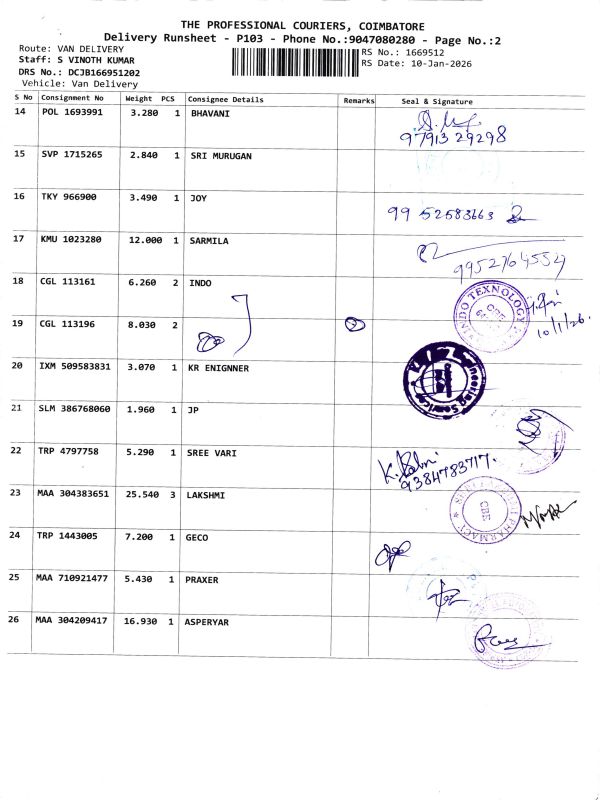 THE PROFESSIONAL COURIERS, COIMBATORE
Delivery Runsheet - P103 - Phone No.:9047080280 - Page No.:2
Route: VAN DELIVERY
RS No.: 1669512
Staff: S VINOTH KUMAR
RS Date: 10-Jan-2026
DRS No.: DCJB166951202
Vehicle: Van Delivery
S No Consignment No Weight PCS Consignee Details Remarks Seal & Signature
14 POL 1693991 3.280 1 BHAVANI
97913 29298
15 SVP 1715265 2.840 1 SRI MURUGAN
16 TKY 966900 3.490 1 JOY
99 52583663
17 KMU 1023280 12.000 1 SARMILA
9952764554
18 CGL 113161 6.260 2 INDO
INDO TEXNOLOGY
CBE
10/1/26.
19 CGL 113196 8.030 2
20 IXM 509583831 3.070 1 KR ENIGNNER
Engineering Services
21 SLM 386768060 1.960 1 JP
22 TRP 4797758 5.290 1 SREE VARI
9384783717.
23 MAA 304383651 25.540 3 LAKSHMI
PHARMACY
CBE
24 TRP 1443005 7.200 1 GECO
25 MAA 710921477 5.430 1 PRAXER
26 MAA 304209417 16.930 1 ASPERYAR